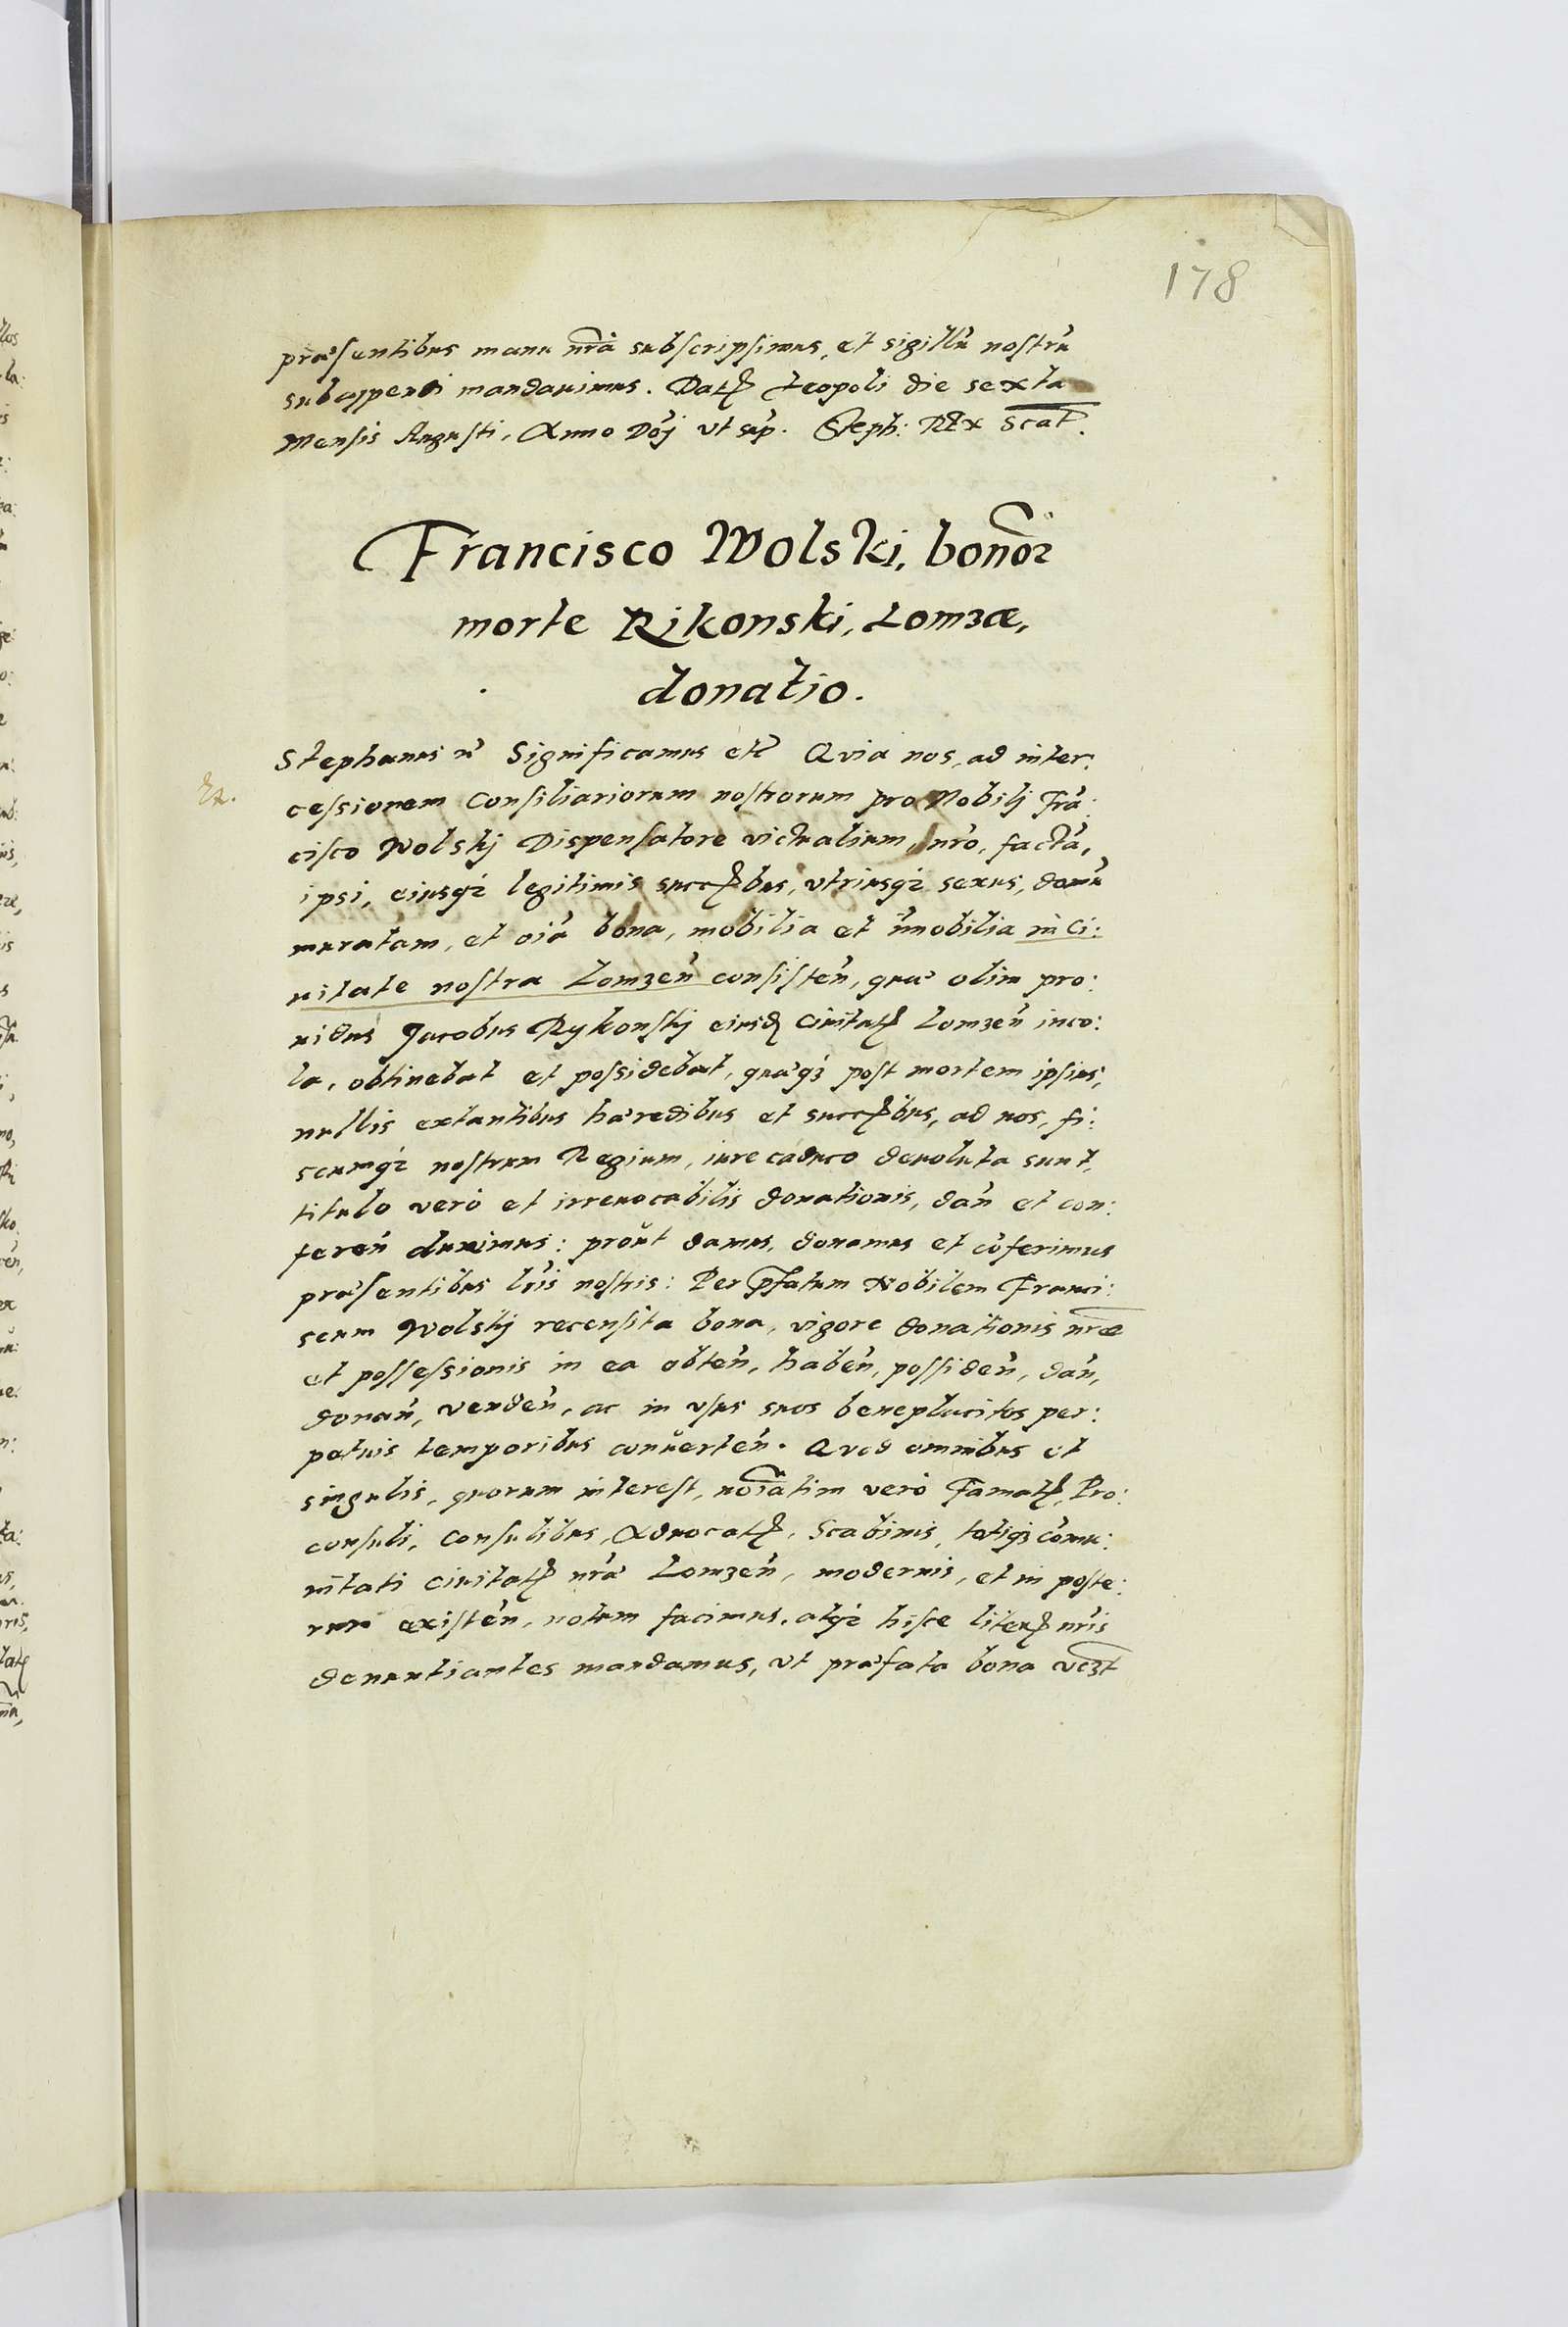 178
præsentibus manu nrã subscripsimus, et sigillũ nostrũ
subappendi mandauimus. Datȩ Leopoli die sexta
Mensis Augusti, Anno Dõj vt sup̃. Steph: Rex Scat̃.
Francisco Wolski, bonõr
morte Rikonski, Lomzæ,
donatio.
Stephanus &c̃ Significamus etc̃ Quia nos, ad inter:
cessionem Consiliariorum nostrorum pro Nobilj Frã:
cisco Wolskj Dispensatore victualium, nr̃o, factã,
ipsi, eiusq; legitimis succȩbus, vtriusq; sexus, domũ
muratam, et oĩa bona, mobilia et ĩmobilia in Ci:
uitate nostra Lomzeñ consisteñ, quæ olim pro:
uidus Jacobus Rykonskj eiusd Ciuitatȩ Lomzeñ inco:
la, obtinebat et possidebat, quæq; post mortem ipsius,
nullis extantibus hæredibus et succȩbus, ad nos, fi:
scumq; nostrum Regium, iure caduco deuoluta sunt,
titulo veró et irreuocabilis donationis, dañ et con:
fereñ duximus: prout damus, donamus et cõferimus
præsentibus lr̃is nostris: Per p̃fatum Nobilem Franci:
scum Wolskj recensita bona, vigore donationis nr̃æ
et possessionis in ea obteñ, habeñ, possideñ, dañ,
donañ, vendeñ, ac in vsus suos beneplacitos per:
petuis temporibus conuerteñ. Quod omnibus et
singulis, quorum interest, noĩatim veró Famatȩ, Pro:
consuli, Consulibus, Aduocatȩ, Scabinis, totiq; cõmu:
nitati Ciuitatȩ nr̃æ Lomzeñ, modernis, et in poste:
rum existeñ, notum facimus, atq; hisce literȩ nr̃is
denuntiantes mandamus, vt præfata bona vezt